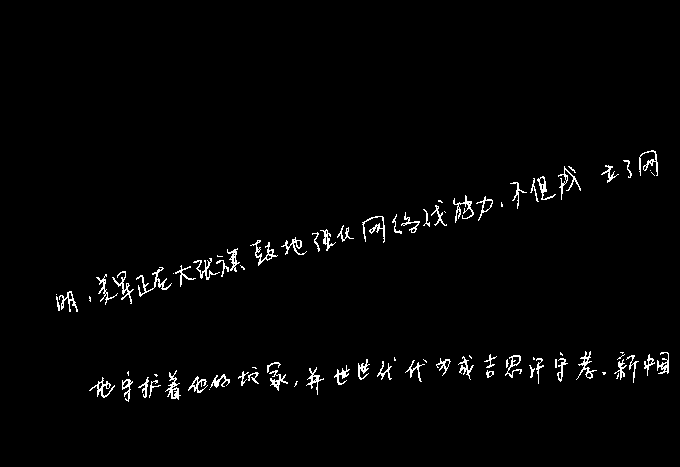 明,美军正在大张旗鼓地强化网络战能力,不但成立了网
地守护着他的坟冢,并世世代代为成吉思汗守孝。新中国